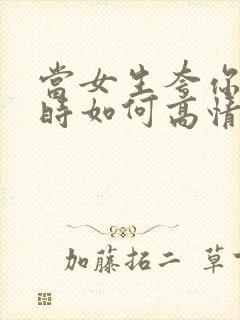 當女生夸你
時如何高情
加藤拓二 草